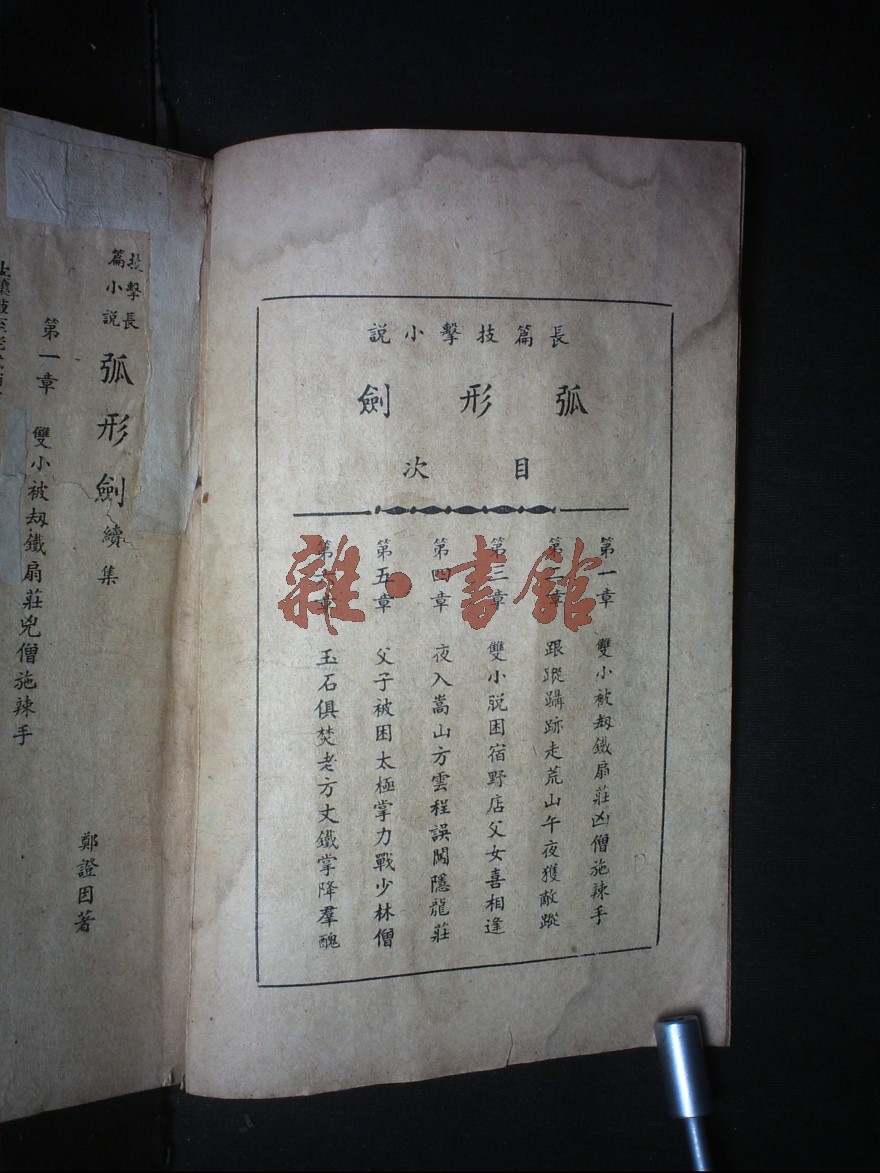 長篇技擊小說
弧形劍
目次
第一章 雙小被刼鐵扇莊凶僧施辣手
第二章 跟蹤躡跡走荒山午夜獲敵蹤
第三章 雙小脫困宿野店父女喜相逢
第四章 夜入嵩山方雲程誤闖隱龍莊
第五章 父子被困太極掌力戰少林僧
第六章 玉石俱焚老方丈鐵掌降羣醜
雜·書館
技擊長篇小說 弧形劍續集
第一章 雙小被刼鐵扇莊兇僧施辣手
鄭證因著